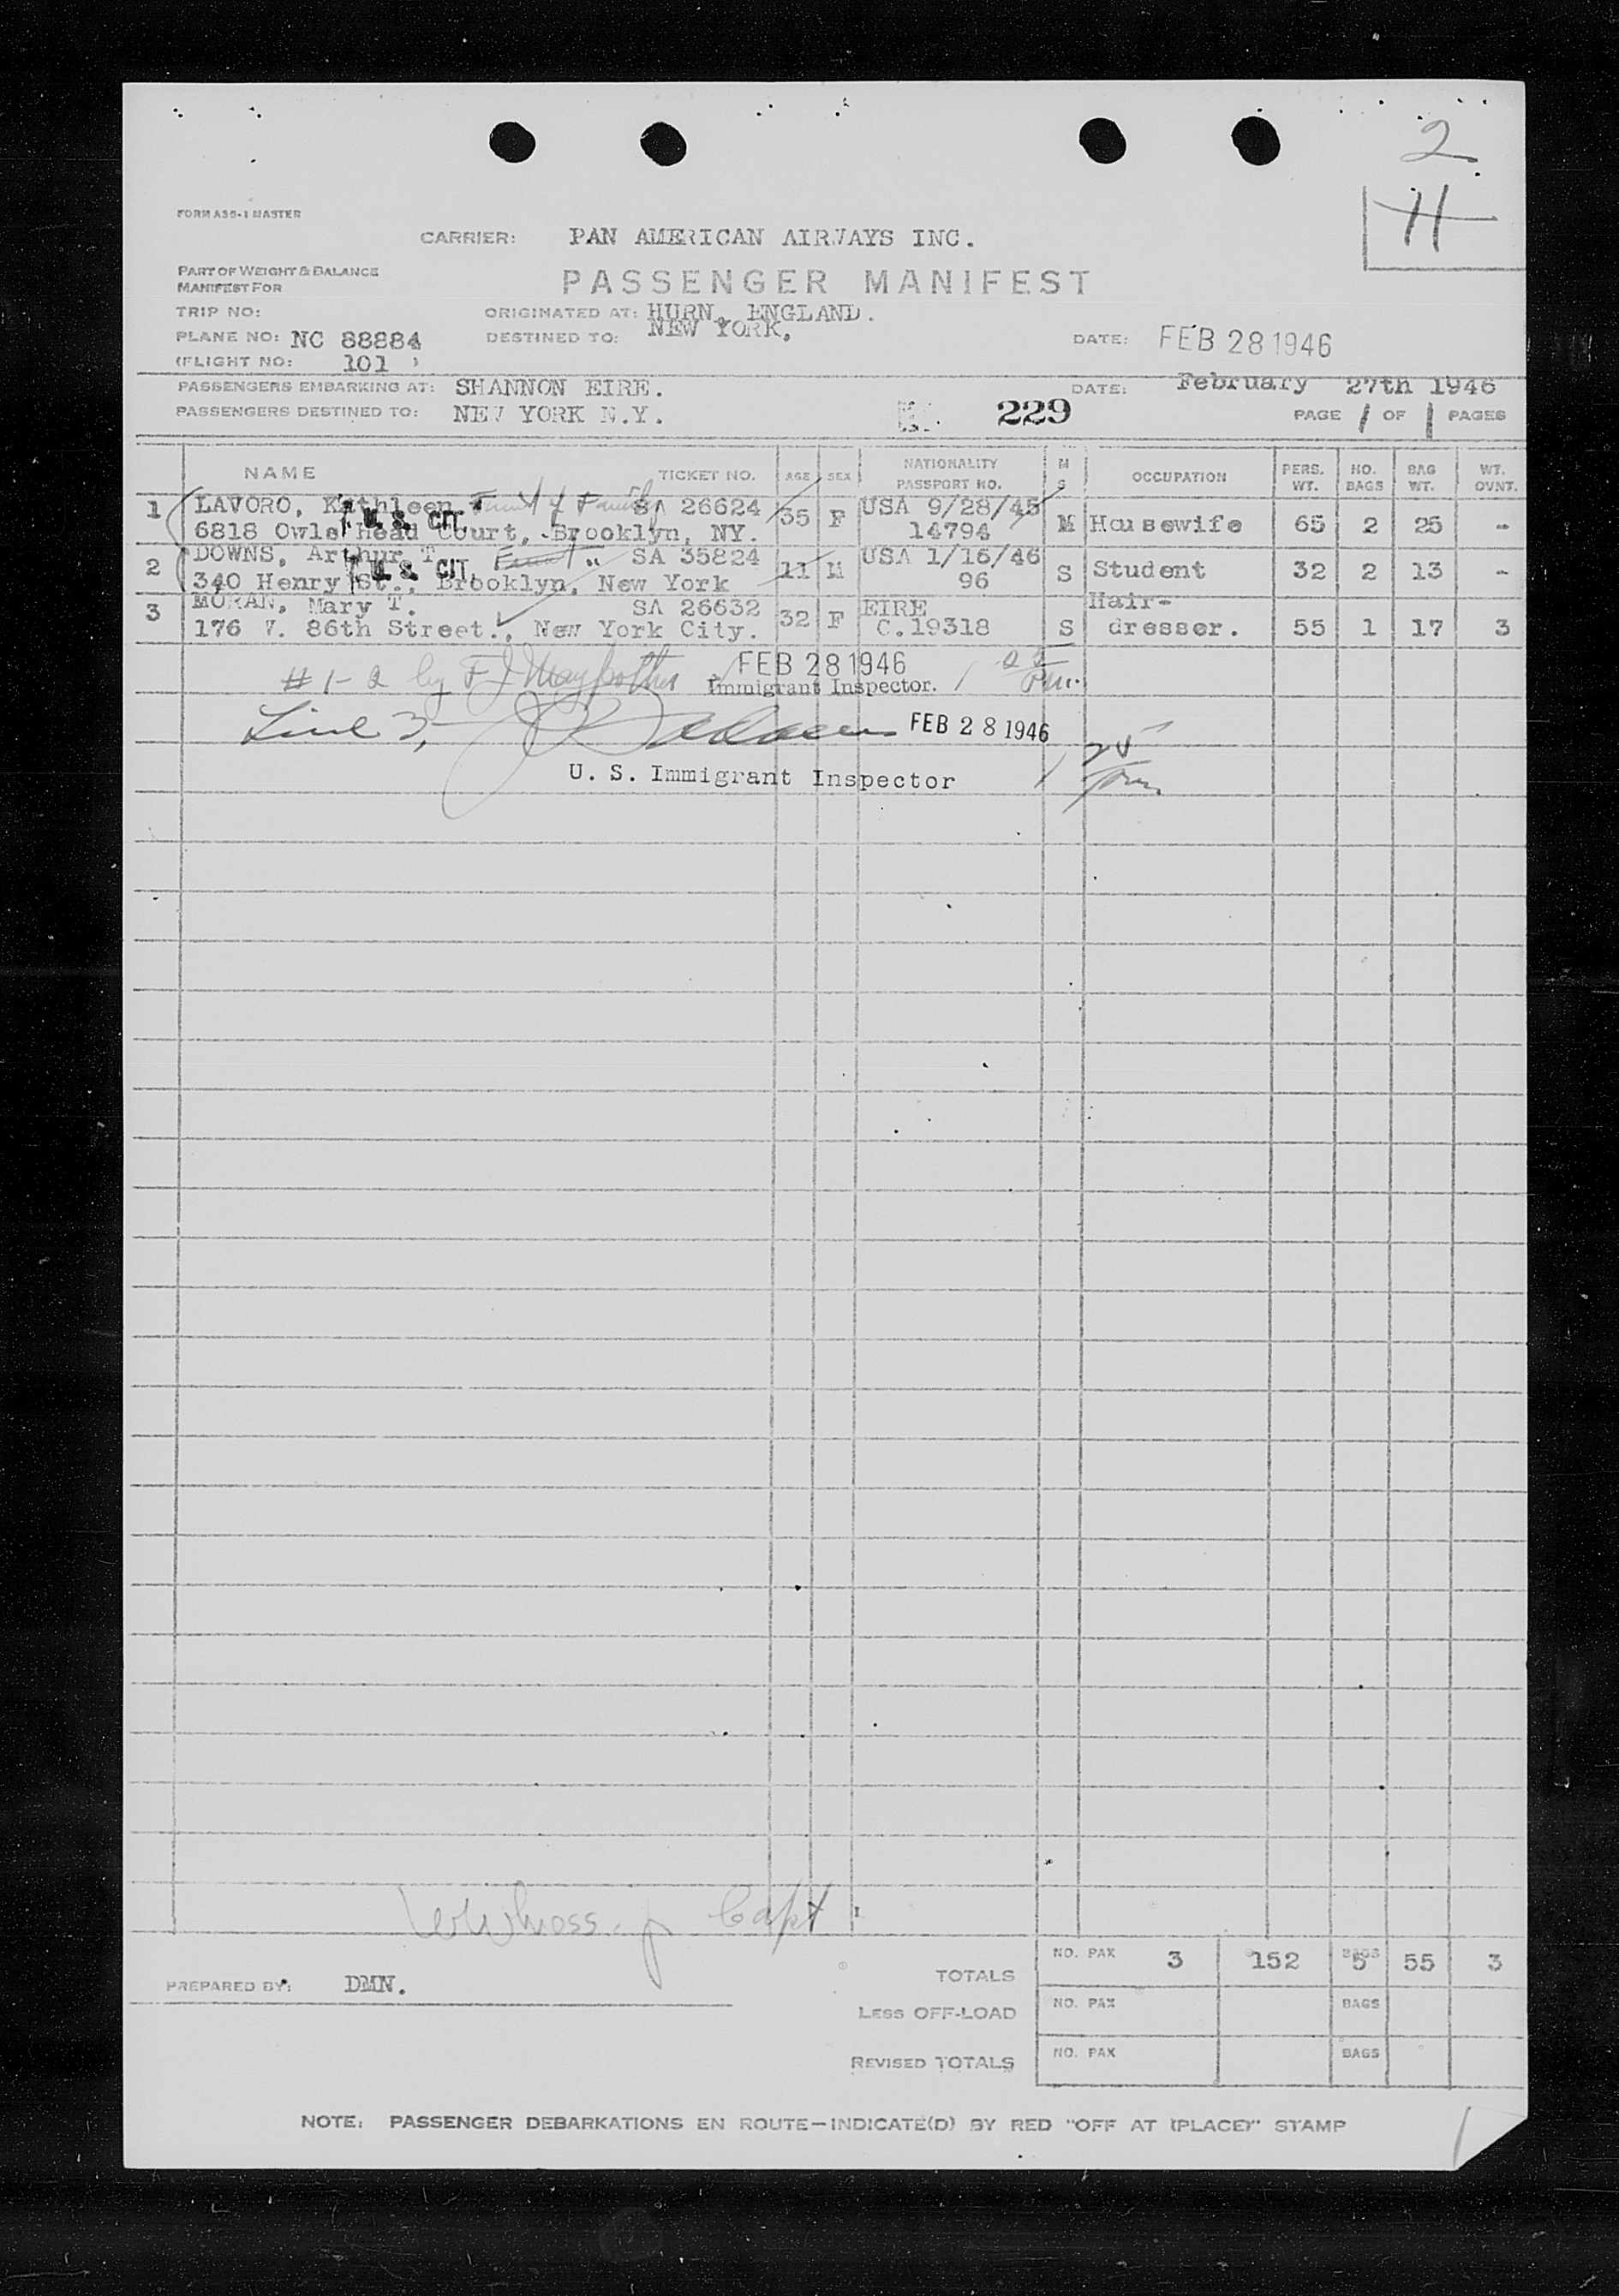 2
H
FORM A30-1 MASTER
CARRIER: PAN AMERICAN AIRWAYS INC.
PART OF WEIGHT & BALANCE
MANIFEST FOR
PASSENGER MANIFEST
TRIP NO: ORIGINATED AT: HURN, ENGLAND.
PLANE NO: NC 88884 DESTINED TO: NEW YORK, DATE: FEB 28 1946
(FLIGHT NO: 101 )
PASSENGERS EMBARKING AT: SHANNON EIRE. DATE: February 27th 1946
PASSENGERS DESTINED TO: NEW YORK N.Y. 229 PAGE 1 OF 1 PAGES
NAME TICKET NO. AGE SEX NATIONALITY PASSPORT NO. M S OCCUPATION PERS. WT. NO. BAGS BAG WT. WT. OVNT.
1 LAVORO, Kathleen. SA 26624 35 F USA 9/28/45 M Housewife 65 2 25 -
U. S. CIT.
6818 Owls Head Court, Brooklyn, NY. 14794
2 DOWNS, Arthur T. SA 35824 11 M USA 1/16/46 S Student 32 2 13 -
U. S. CIT.
340 Henry St., Brooklyn, New York 96
3 MORAN, Mary T. SA 26632 32 F EIRE S Hair-
176 W. 86th Street., New York City. C.19318 dresser. 55 1 17 3
# 1-2 by FEB 28 1946
Immigrant Inspector.
Line 3, FEB 28 1946
U. S. Immigrant Inspector
Capt
TOTALS NO. PAX 3 152 BAGS 5 55 3
PREPARED BY: DMN.
LESS OFF-LOAD NO. PAX BAGS
REVISED TOTALS NO. PAX BAGS
NOTE: PASSENGER DEBARKATIONS EN ROUTE—INDICATE(D) BY RED "OFF AT (PLACE)" STAMP